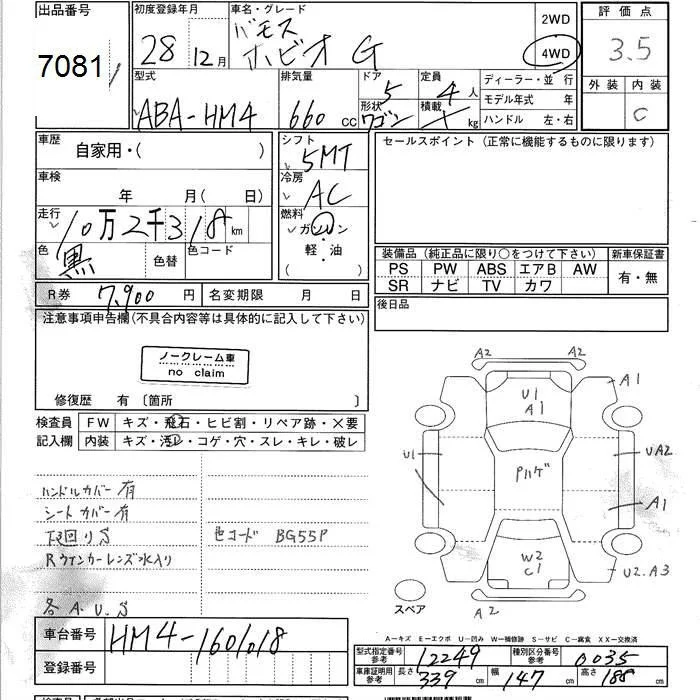 出品番号
7081
初度登録年月
28 12月
車名・グレード
バモス
ホビオ G
2WD
4WD
評価点
3.5
外装 内装
C
型式
ABA-HM4
排気量
660 cc
ドア
5
形状
ワゴン
定員
4人
積載
kg
ディーラー・並行
モデル年式 年
ハンドル 左・右
車歴
自家用・( )
車検
年 月( 日)
走行
10万2千318 km
色
黒
色替
色コード
シフト
5MT
冷房
AC
燃料
ガソリン
軽・油
( )
セールスポイント (正常に機能するものに限ります)
装備品 (純正品に限り○をつけて下さい)
新車保証書
PS PW ABS エアB AW
SR ナビ TV カワ
有・無
R券 7,900 円
名変期限 月 日
後日品
注意事項申告欄(不具合内容等は具体的に記入して下さい)
ノークレーム車
no claim
修復歴 有〔箇所 〕
検査員
記入欄
FW キズ・飛石・ヒビ割・リペア跡・×要
内装 キズ・汚レ・コゲ・穴・スレ・キレ・破レ
ハンドルカバー有
シートカバー有
下回りS
色コード BG55P
Rウインカーレンズ水入り
各A.U.S
A2 A2
U1
A1
A1
U1
Pハゲ
UA2
A1
W2
C1
U2.A3
スペア
A2
A-キズ E-エクボ U-凹み W-補修跡 S-サビ C-腐食 XX-交換済
車台番号
HM4-1601018
登録番号
型式指定番号
参考
12249
種別区分番号
参考
0035
車庫証明用
参考
長さ 339 cm
幅 147 cm
高さ 188 cm